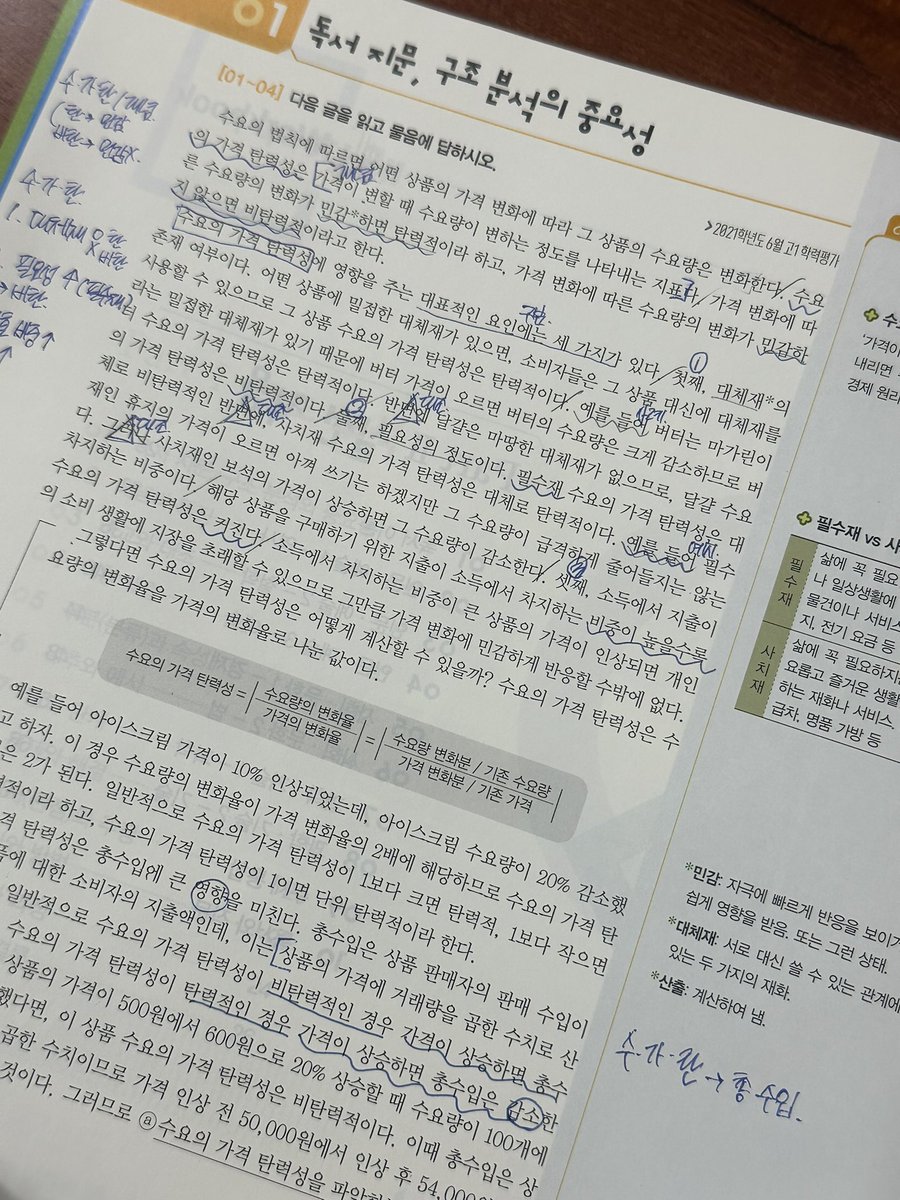 01
독서 지문, 구조 분석의 중요성
[01~04] 다음 글을 읽고 물음에 답하시오.
>2021학년도 6월 고1 학력평가
수요의 법칙에 따르면 어떤 상품의 가격 변화에 따라 그 상품의 수요량은 변화한다. 수요
의 가격 탄력성은 가격이 변할 때 수요량이 변하는 정도를 나타내는 지표다. 가격 변화에 따
른 수요량의 변화가 민감*하면 탄력적이라 하고, 가격 변화에 따른 수요량의 변화가 민감하
지 않으면 비탄력적이라고 한다.
수요의 가격 탄력성에 영향을 주는 대표적인 요인에는 세 가지가 있다. 첫째, 대체재*의
존재 여부이다. 어떤 상품에 밀접한 대체재가 있으면, 소비자들은 그 상품 대신에 대체재를
사용할 수 있으므로 그 상품 수요의 가격 탄력성은 탄력적이다. 예를 들어 버터는 마가린이
라는 밀접한 대체재가 있기 때문에 버터 가격이 오르면 버터의 수요량은 크게 감소하므로 버
터 수요의 가격 탄력성은 탄력적이다. 반면에 달걀은 마땅한 대체재가 없으므로, 달걀 수요
의 가격 탄력성은 비탄력적이다. 둘째, 필요성의 정도이다. 필수재 수요의 가격 탄력성은 대
체로 비탄력적인 반면에, 사치재 수요의 가격 탄력성은 대체로 탄력적이다. 예를 들어 필수
재인 휴지의 가격이 오르면 아껴 쓰기는 하겠지만 그 수요량이 급격하게 줄어들지는 않는
다. 그러나 사치재인 보석의 가격이 상승하면 그 수요량이 감소한다. 셋째, 소득에서 지출이
차지하는 비중이다. 해당 상품을 구매하기 위한 지출이 소득에서 차지하는 비중이 높을수록
수요의 가격 탄력성은 커진다. 소득에서 차지하는 비중이 큰 상품의 가격이 인상되면 개인
의 소비 생활에 지장을 초래할 수 있으므로 그만큼 가격 변화에 민감하게 반응할 수밖에 없다.
그렇다면 수요의 가격 탄력성은 어떻게 계산할 수 있을까? 수요의 가격 탄력성은 수
요량의 변화율을 가격의 변화율로 나눈 값이다.
수요의 가격 탄력성 = | 수요량의 변화율 / 가격의 변화율 | = | 수요량 변화분 / 기존 수요량 / 가격 변화분 / 기존 가격 |
예를 들어 아이스크림 가격이 10% 인상되었는데, 아이스크림 수요량이 20% 감소했
고 하자. 이 경우 수요량의 변화율이 가격 변화율의 2배에 해당하므로 수요의 가격 탄
은 2가 된다. 일반적으로 수요의 가격 탄력성이 1보다 크면 탄력적, 1보다 작으면
력적이라 하고, 수요의 가격 탄력성이 1이면 단위 탄력적이라 한다.
격 탄력성은 총수입에 큰 영향을 미친다. 총수입은 상품 판매자의 판매 수입이
품에 대한 소비자의 지출액인데, 이는 상품의 가격에 거래량을 곱한 수치로 산
일반적으로 수요의 가격 탄력성이 비탄력적인 경우 가격이 상승하면 총수
수요의 가격 탄력성이 탄력적인 경우 가격이 상승하면 총수입은 감소한
상품의 가격이 500원에서 600원으로 20% 상승할 때 수요량이 100개에
했다면, 이 상품 수요의 가격 탄력성은 비탄력적이다. 이때 총수입은 상
곱한 수치이므로 가격 인상 전 50,000원에서 인상 후 54,000
것이다. 그러므로 ⓐ수요의 가격 탄력성을 파악하
수·가·탄
1. 대체재
'가격이
내리면
경제 원리
필수재 vs 사
필수재
삶에 꼭 필요
나 일상생활에
물건이나 서비스
지, 전기 요금 등
사치재
삶에 꼭 필요하지는
요롭고 즐거운 생활
하는 재화나 서비스
급차, 명품 가방 등
*민감: 자극에 빠르게 반응을 보이거
쉽게 영향을 받음. 또는 그런 상태.
*대체재: 서로 대신 쓸 수 있는 관계에
있는 두 가지의 재화.
*산출: 계산하여 냄.
수·가·탄 → 총수입.